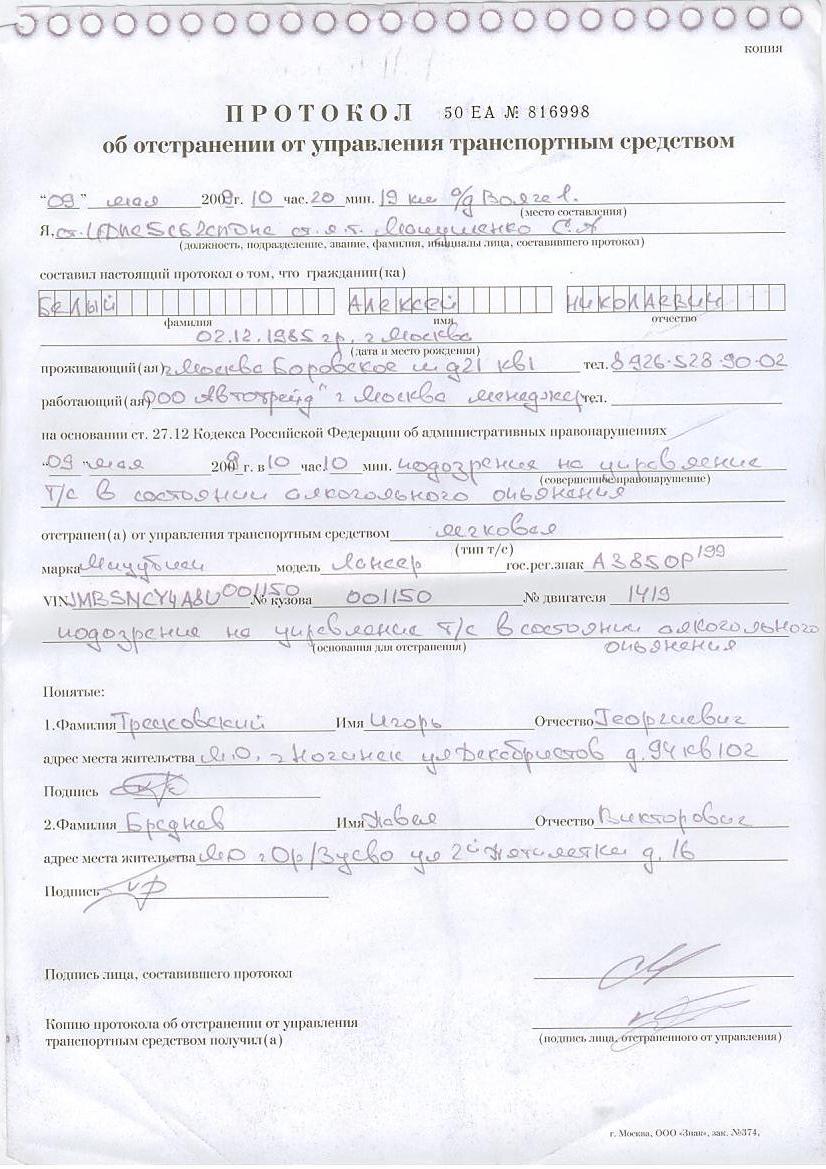 копия
ПРОТОКОЛ 50 ЕА № 816998
об отстранении от управления транспортным средством
"09" мая 2009г. 10 час. 20 мин. 19 км а/д Волга 1.
(место составления)
Я, ст. С.А
(должность, подразделение, звание, фамилия, инициалы лица, составившего протокол)
составил настоящий протокол о том, что гражданин(ка)
БЕЛЫЙ АЛЕКСЕЙ НИКОЛАЕВИЧ
фамилия имя отчество
02.12.1985 гр. г Москва
(дата и место рождения)
проживающий(ая) г Москва Боровское ш д21 кв1 тел. 8926-528-90-02
работающий(ая) ООО Автотрейд" г Москва менеджер тел.
на основании ст. 27.12 Кодекса Российской Федерации об административных правонарушениях
"09" мая 2009 г. в 10 час 10 мин. подозрения на управление
(совершенные правонарушение)
т/с в состоянии алкогольного опьянения
отстранен(а) от управления транспортным средством легковая
(тип т/с)
марка Мицубиси модель Лансер гос.рег.знак А385ОР199
VIN JMBSNCY4A8U001150 № кузова 001150 № двигателя 1419
подозрения на управление т/с в состоянии алкогольного
(основания для отстранения) опьянения
Понятые:
1.Фамилия Имя Игорь Отчество Георгиевич
адрес места жительства М.О. г Ногинск ул Декабристов д. 94 кв 102
Подпись
2.Фамилия Бреднев Имя Павел Отчество Викторович
адрес места жительства МО г Ор/Зуево ул 2й Пятилетки д. 16
Подпись
Подпись лица, составившего протокол
Копию протокола об отстранении от управления
транспортным средством получил(а)
(подпись лица, отстраненного от управления)
г. Москва, ООО «Знак», зак. №374,